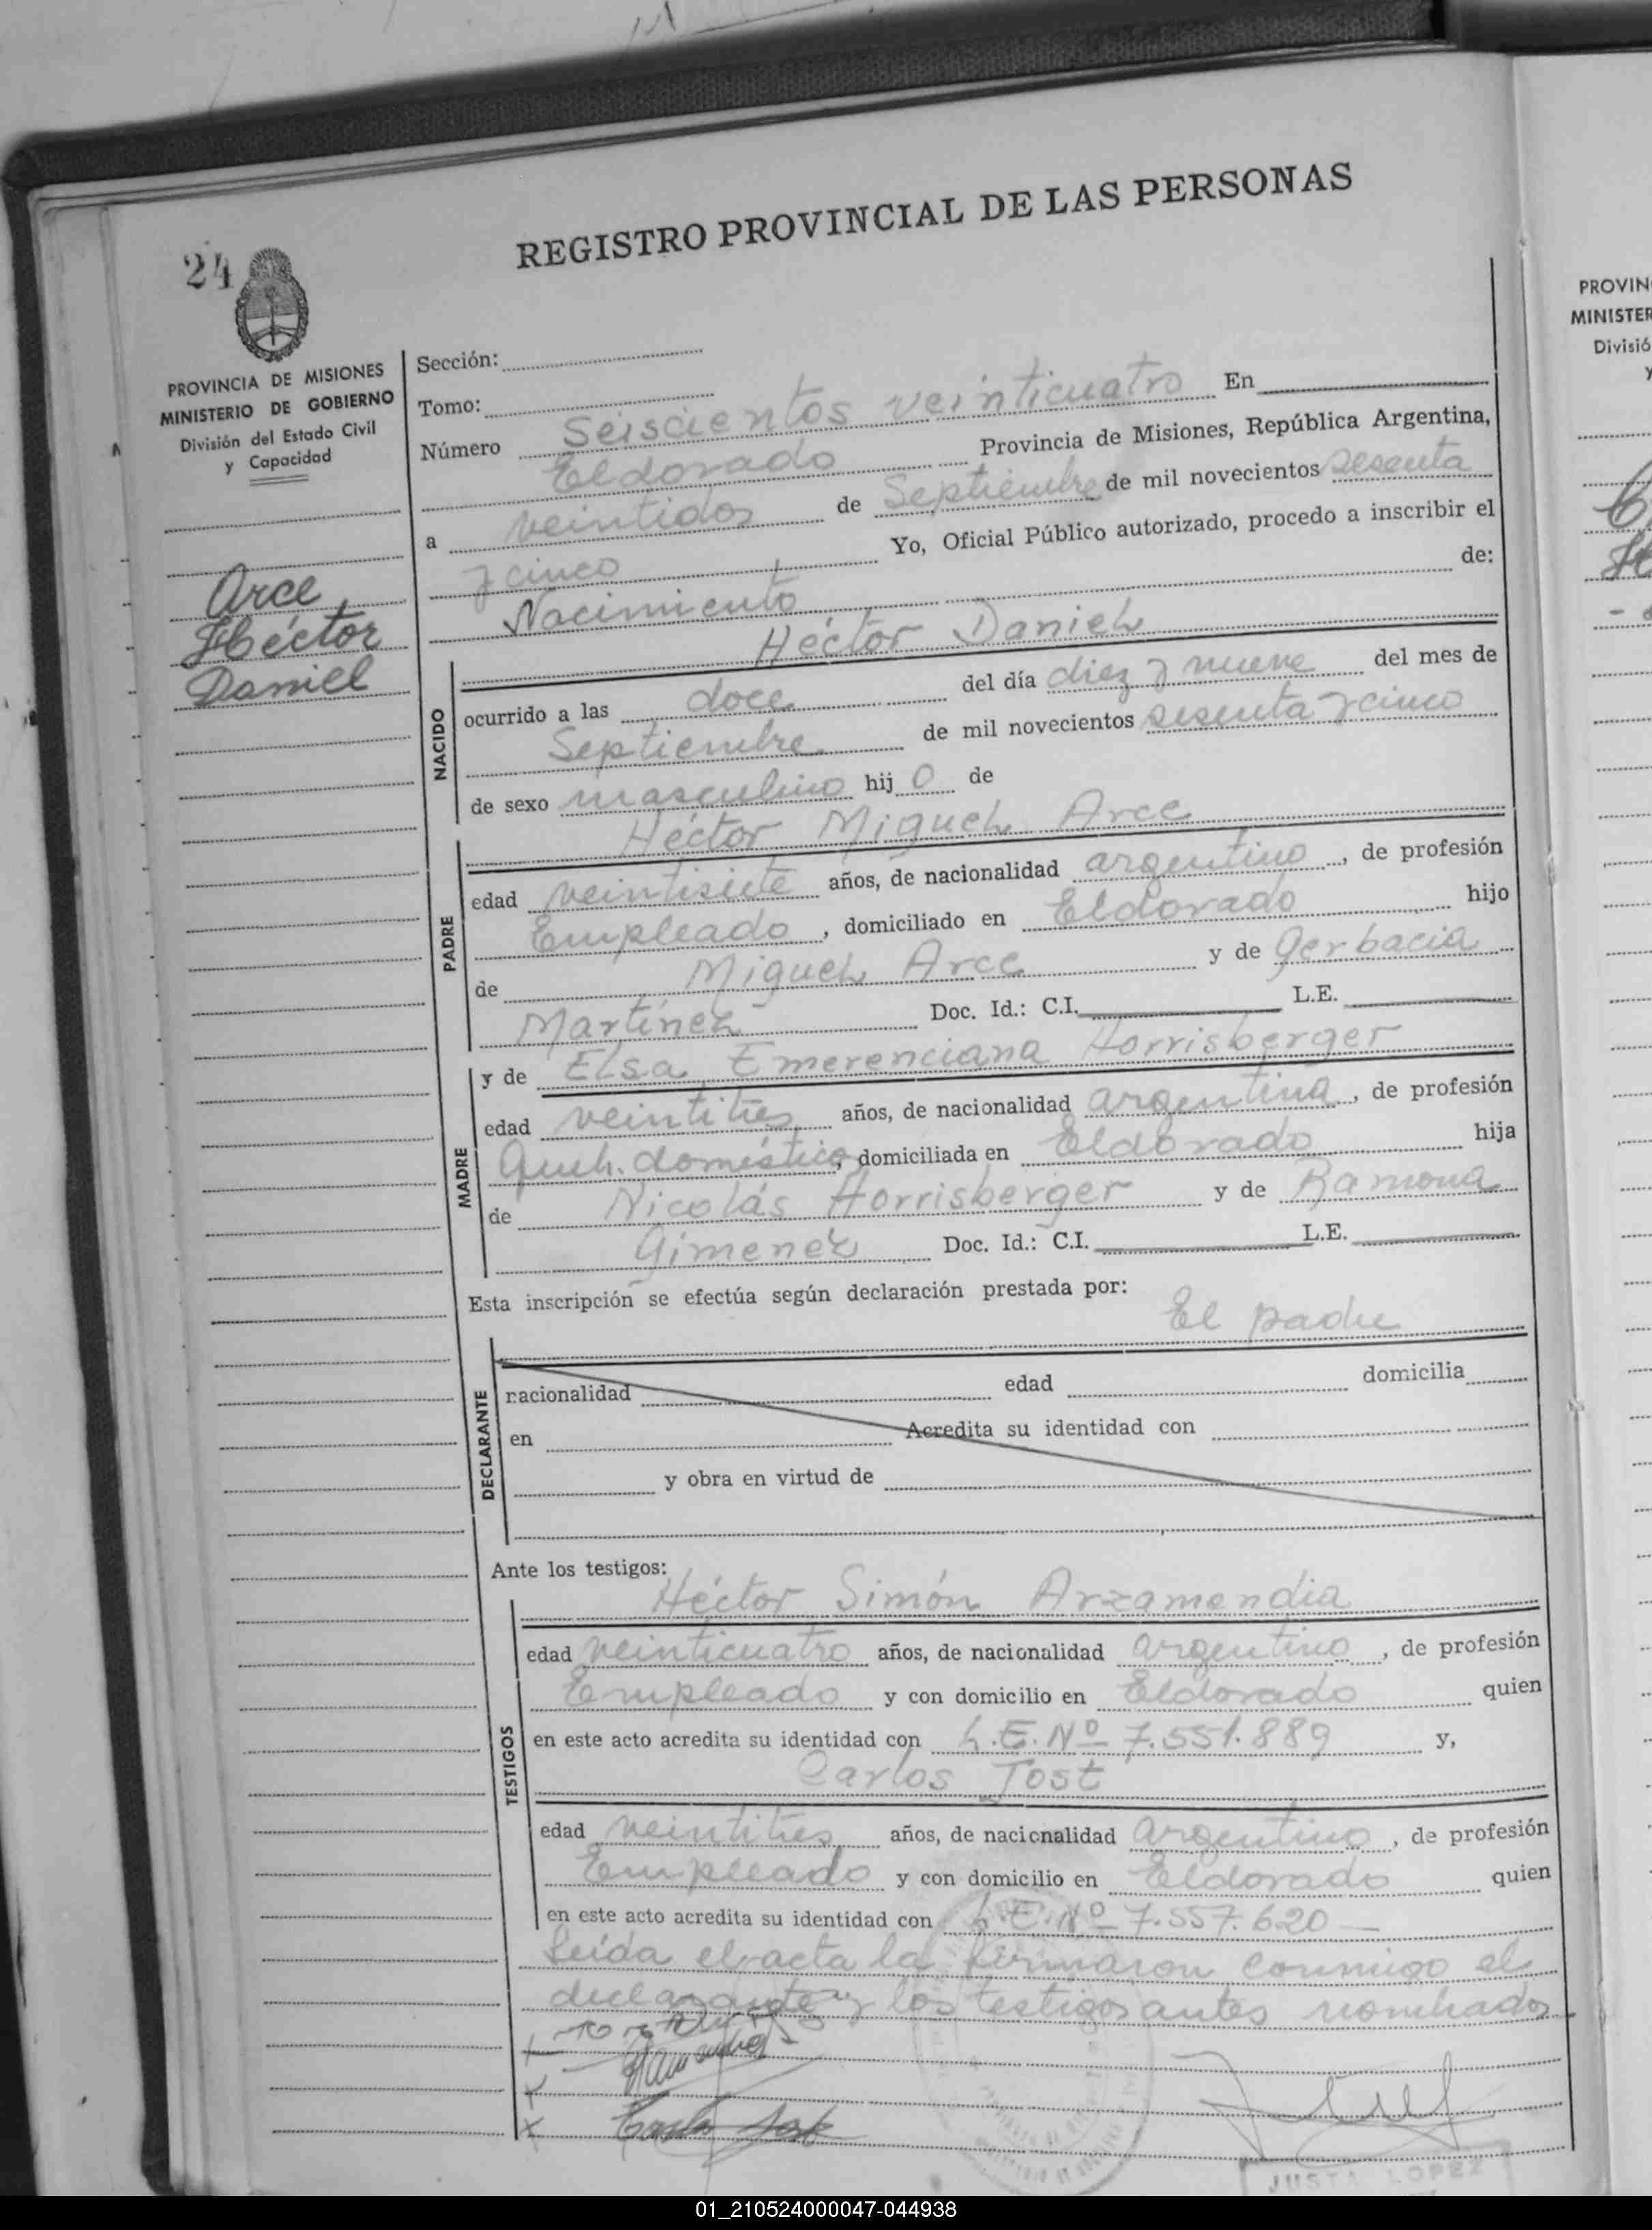 REGISTRO PROVINCIAL DE LAS PERSONAS
24
PROVINCIA DE MISIONES
MINISTERIO DE GOBIERNO
División del Estado Civil
y Capacidad
Arce
Héctor
Daniel
Sección:
Tomo:
Número Seiscientos veinticuatro En
Eldorado Provincia de Misiones, República Argentina,
a veintidos de Septiembre de mil novecientos sesenta
y cinco Yo, Oficial Público autorizado, procedo a inscribir el
Nacimiento de:
NACIDO
Héctor Daniel
ocurrido a las doce del día diez y nueve del mes de
Septiembre de mil novecientos sesenta y cinco
de sexo masculino hij o de
PADRE
Héctor Miguel Arce
edad veintisiete años, de nacionalidad argentino, de profesión
Empleado, domiciliado en Eldorado hijo
de Miguel Arce y de Gerbacia
Martínez Doc. Id.: C.I. L.E.
MADRE
y de Elsa Emerenciana Horrisberger
edad veintitres años, de nacionalidad argentina, de profesión
Queh. doméstico, domiciliada en Eldorado hija
de Nicolás Horrisberger y de Ramona
Gimenéz Doc. Id.: C.I. L.E.
Esta inscripción se efectúa según declaración prestada por:
El padre
DECLARANTE
nacionalidad edad domicilia
en Acredita su identidad con
y obra en virtud de
Ante los testigos:
TESTIGOS
Héctor Simón Arzamendia
edad veinticuatro años, de nacionalidad argentino, de profesión
Empleado y con domicilio en Eldorado quien
en este acto acredita su identidad con L.E. Nº 7.551.889 y,
Carlos Jost
edad veintitres años, de nacionalidad Argentino, de profesión
Empleado y con domicilio en Eldorado quien
en este acto acredita su identidad con L.E. Nº 7.557.620 —
Leída el acta la firmaron conmigo el
declarante y los testigos antes nombrados
Carlos Jost
JUSTA LOPEZ
PROVIN
MINISTER
Divisió
y
01_210524000047-044938